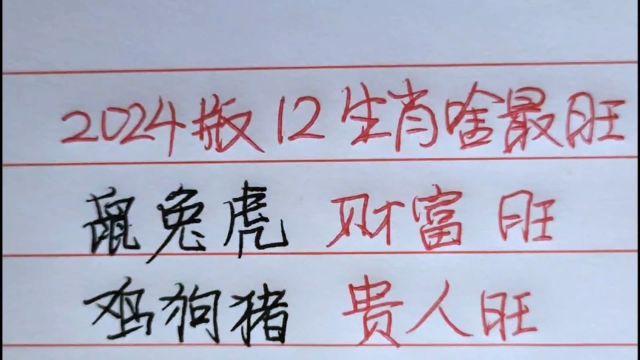 2024版12生肖啥最旺
鼠兔虎 财富旺
鸡狗猪 贵人旺